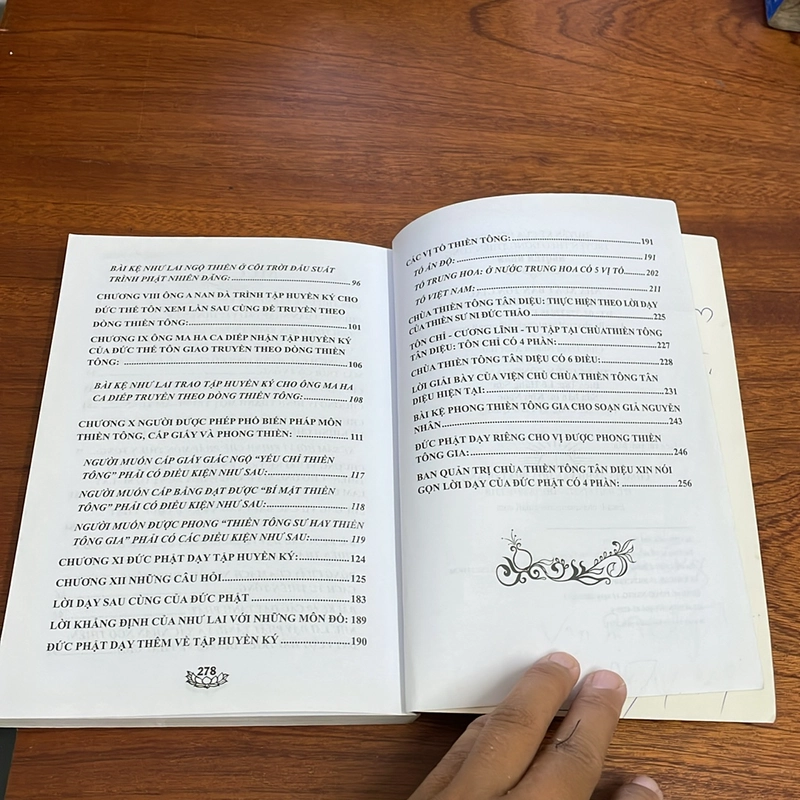 BÀI KỆ NHƯ LAI NGỘ THIỀN Ở CÕI TRỜI ĐÂU SUẤT
TRÌNH PHẬT NHIÊN ĐĂNG:..................96
CHƯƠNG VIII ÔNG A NAN ĐÀ TRÌNH TẬP HUYỀN KÝ CHO
ĐỨC THẾ TÔN XEM LẦN SAU CÙNG ĐỂ TRUYỀN THEO
DÒNG THIỀN TÔNG:..................101
CHƯƠNG IX ÔNG MA HA CA DIẾP NHẬN TẬP HUYỀN KÝ
CỦA ĐỨC THẾ TÔN GIAO TRUYỀN THEO DÒNG THIỀN
TÔNG:..................106
BÀI KỆ NHƯ LAI TRAO TẬP HUYỀN KÝ CHO ÔNG MA HA
CA DIẾP TRUYỀN THEO DÒNG THIỀN TÔNG:..................108
CHƯƠNG X NGƯỜI ĐƯỢC PHÉP PHỔ BIẾN PHÁP MÔN
THIỀN TÔNG, CẤP GIẤY VÀ PHONG THIỀN:..................111
NGƯỜI MUỐN CẤP GIẤY GIÁC NGỘ “YẾU CHỈ THIỀN
TÔNG” PHẢI CÓ ĐIỀU KIỆN NHƯ SAU:..................117
NGƯỜI MUỐN CẤP BẰNG ĐẠT ĐƯỢC “BÍ MẬT THIỀN
TÔNG” PHẢI CÓ ĐIỀU KIỆN NHƯ SAU:..................118
NGƯỜI MUỐN ĐƯỢC PHONG “THIỀN TÔNG SƯ HAY THIỀN
TÔNG GIA” PHẢI CÓ CÁC ĐIỀU KIỆN NHƯ SAU:..................119
CHƯƠNG XI ĐỨC PHẬT DẠY TẬP HUYỀN KÝ:..................124
CHƯƠNG XII NHỮNG CÂU HỎI..................125
LỜI DẠY SAU CÙNG CỦA ĐỨC PHẬT..................183
LỜI KHẲNG ĐỊNH CỦA NHƯ LAI VỚI NHỮNG MÔN ĐỒ: 189
ĐỨC PHẬT DẠY THÊM VỀ TẬP HUYỀN KÝ..................190
278
CÁC VỊ TỔ THIỀN TÔNG:..................191
TỔ ẤN ĐỘ:..................191
TỔ TRUNG HOA: Ở NƯỚC TRUNG HOA CÓ 5 VỊ TỔ..................202
TỔ VIỆT NAM:..................211
CHÙA THIỀN TÔNG TÂN DIỆU: THỰC HIỆN THEO LỜI DẠY
CỦA THIỀN SƯ NI ĐỨC THẢO..................225
TÔN CHỈ - CƯƠNG LĨNH - TU TẬP TẠI CHÙATHIỀN TÔNG
TÂN DIỆU: TÔN CHỈ CÓ 4 PHẦN:..................227
CHÙA THIỀN TÔNG TÂN DIỆU CÓ 6 ĐIỀU:..................228
LỜI GIẢI BÀY CỦA VIỆN CHỦ CHÙA THIỀN TÔNG TÂN
DIỆU HIỆN TẠI:..................231
BÀI KỆ PHONG THIỀN TÔNG GIA CHO SOẠN GIẢ NGUYỄN
NHÂN:..................243
ĐỨC PHẬT DẠY RIÊNG CHO VỊ ĐƯỢC PHONG THIỀN
TÔNG GIA:..................246
BAN QUẢN TRỊ CHÙA THIỀN TÔNG TÂN DIỆU XIN NÓI
GỌN LỜI DẠY CỦA ĐỨC PHẬT CÓ 4 PHẦN:..................256